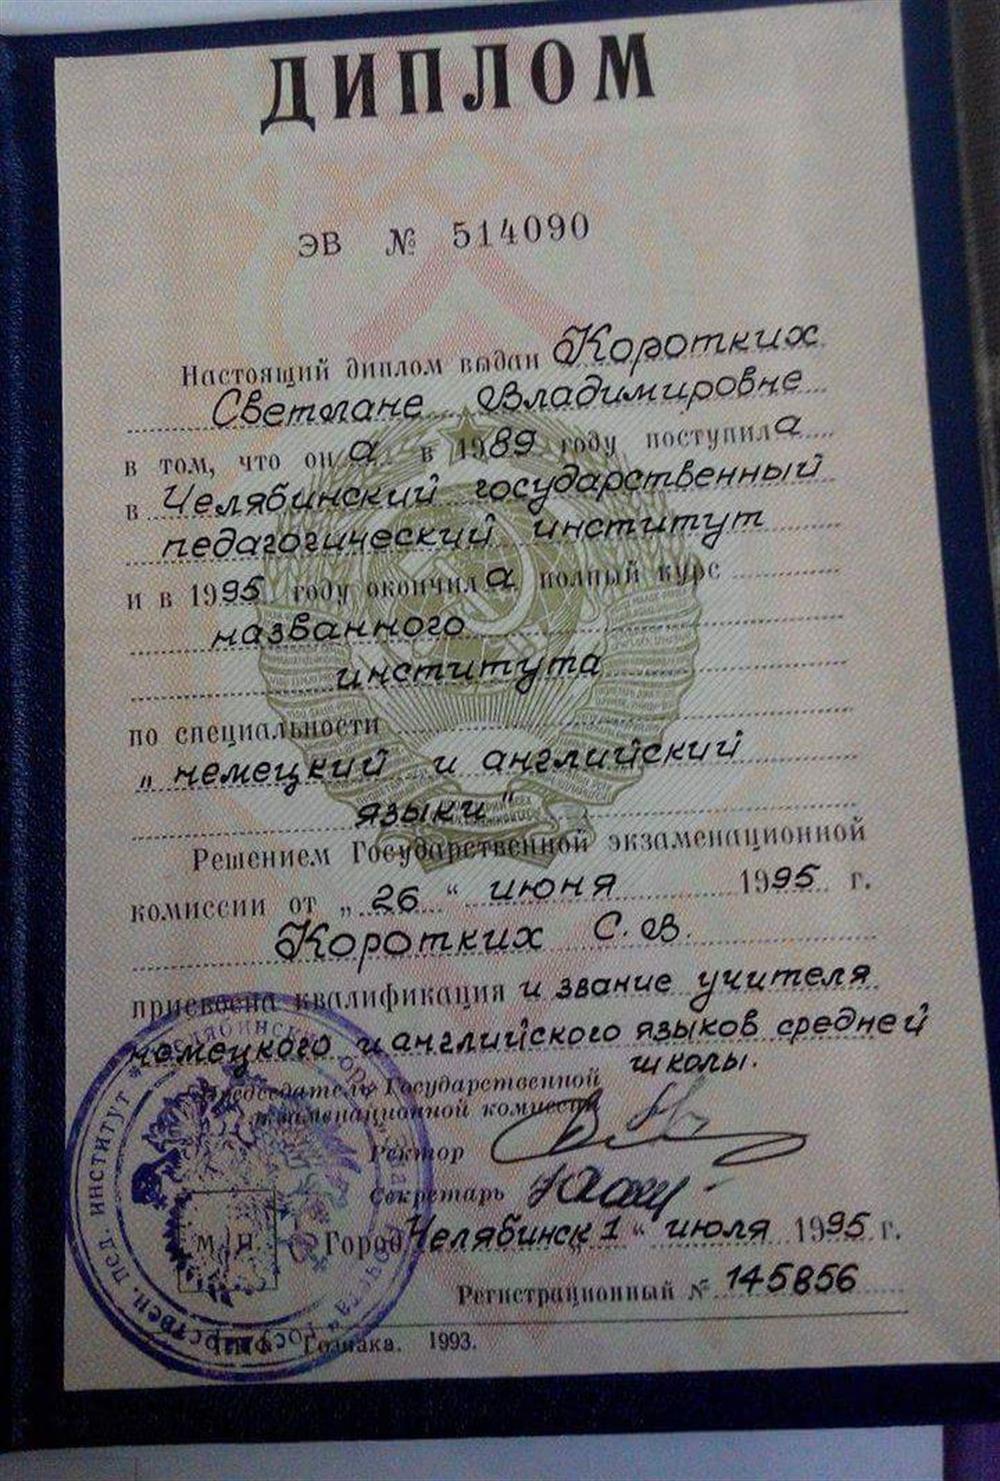 ДИПЛОМ
ЭВ № 514090
Настоящий диплом выдан Коротких
Светлане Владимировне
в том, что он а в 1989 году поступила
в Челябинский государственный
педагогический институт
и в 1995 году окончила полный курс
названного
института
по специальности
„немецкий и английский
языки"
Решением Государственной экзаменационной
комиссии от „26" июня 1995 г.
Коротких С. В.
присвоена квалификация и звание учителя
немецкого и английского языков средней
школы.
Председатель Государственной
экзаменационной комиссии
Ректор
Секретарь
М. П. Город Челябинск 1 " июля 1995 г.
Регистрационный № 145856
Гознака. 1993.